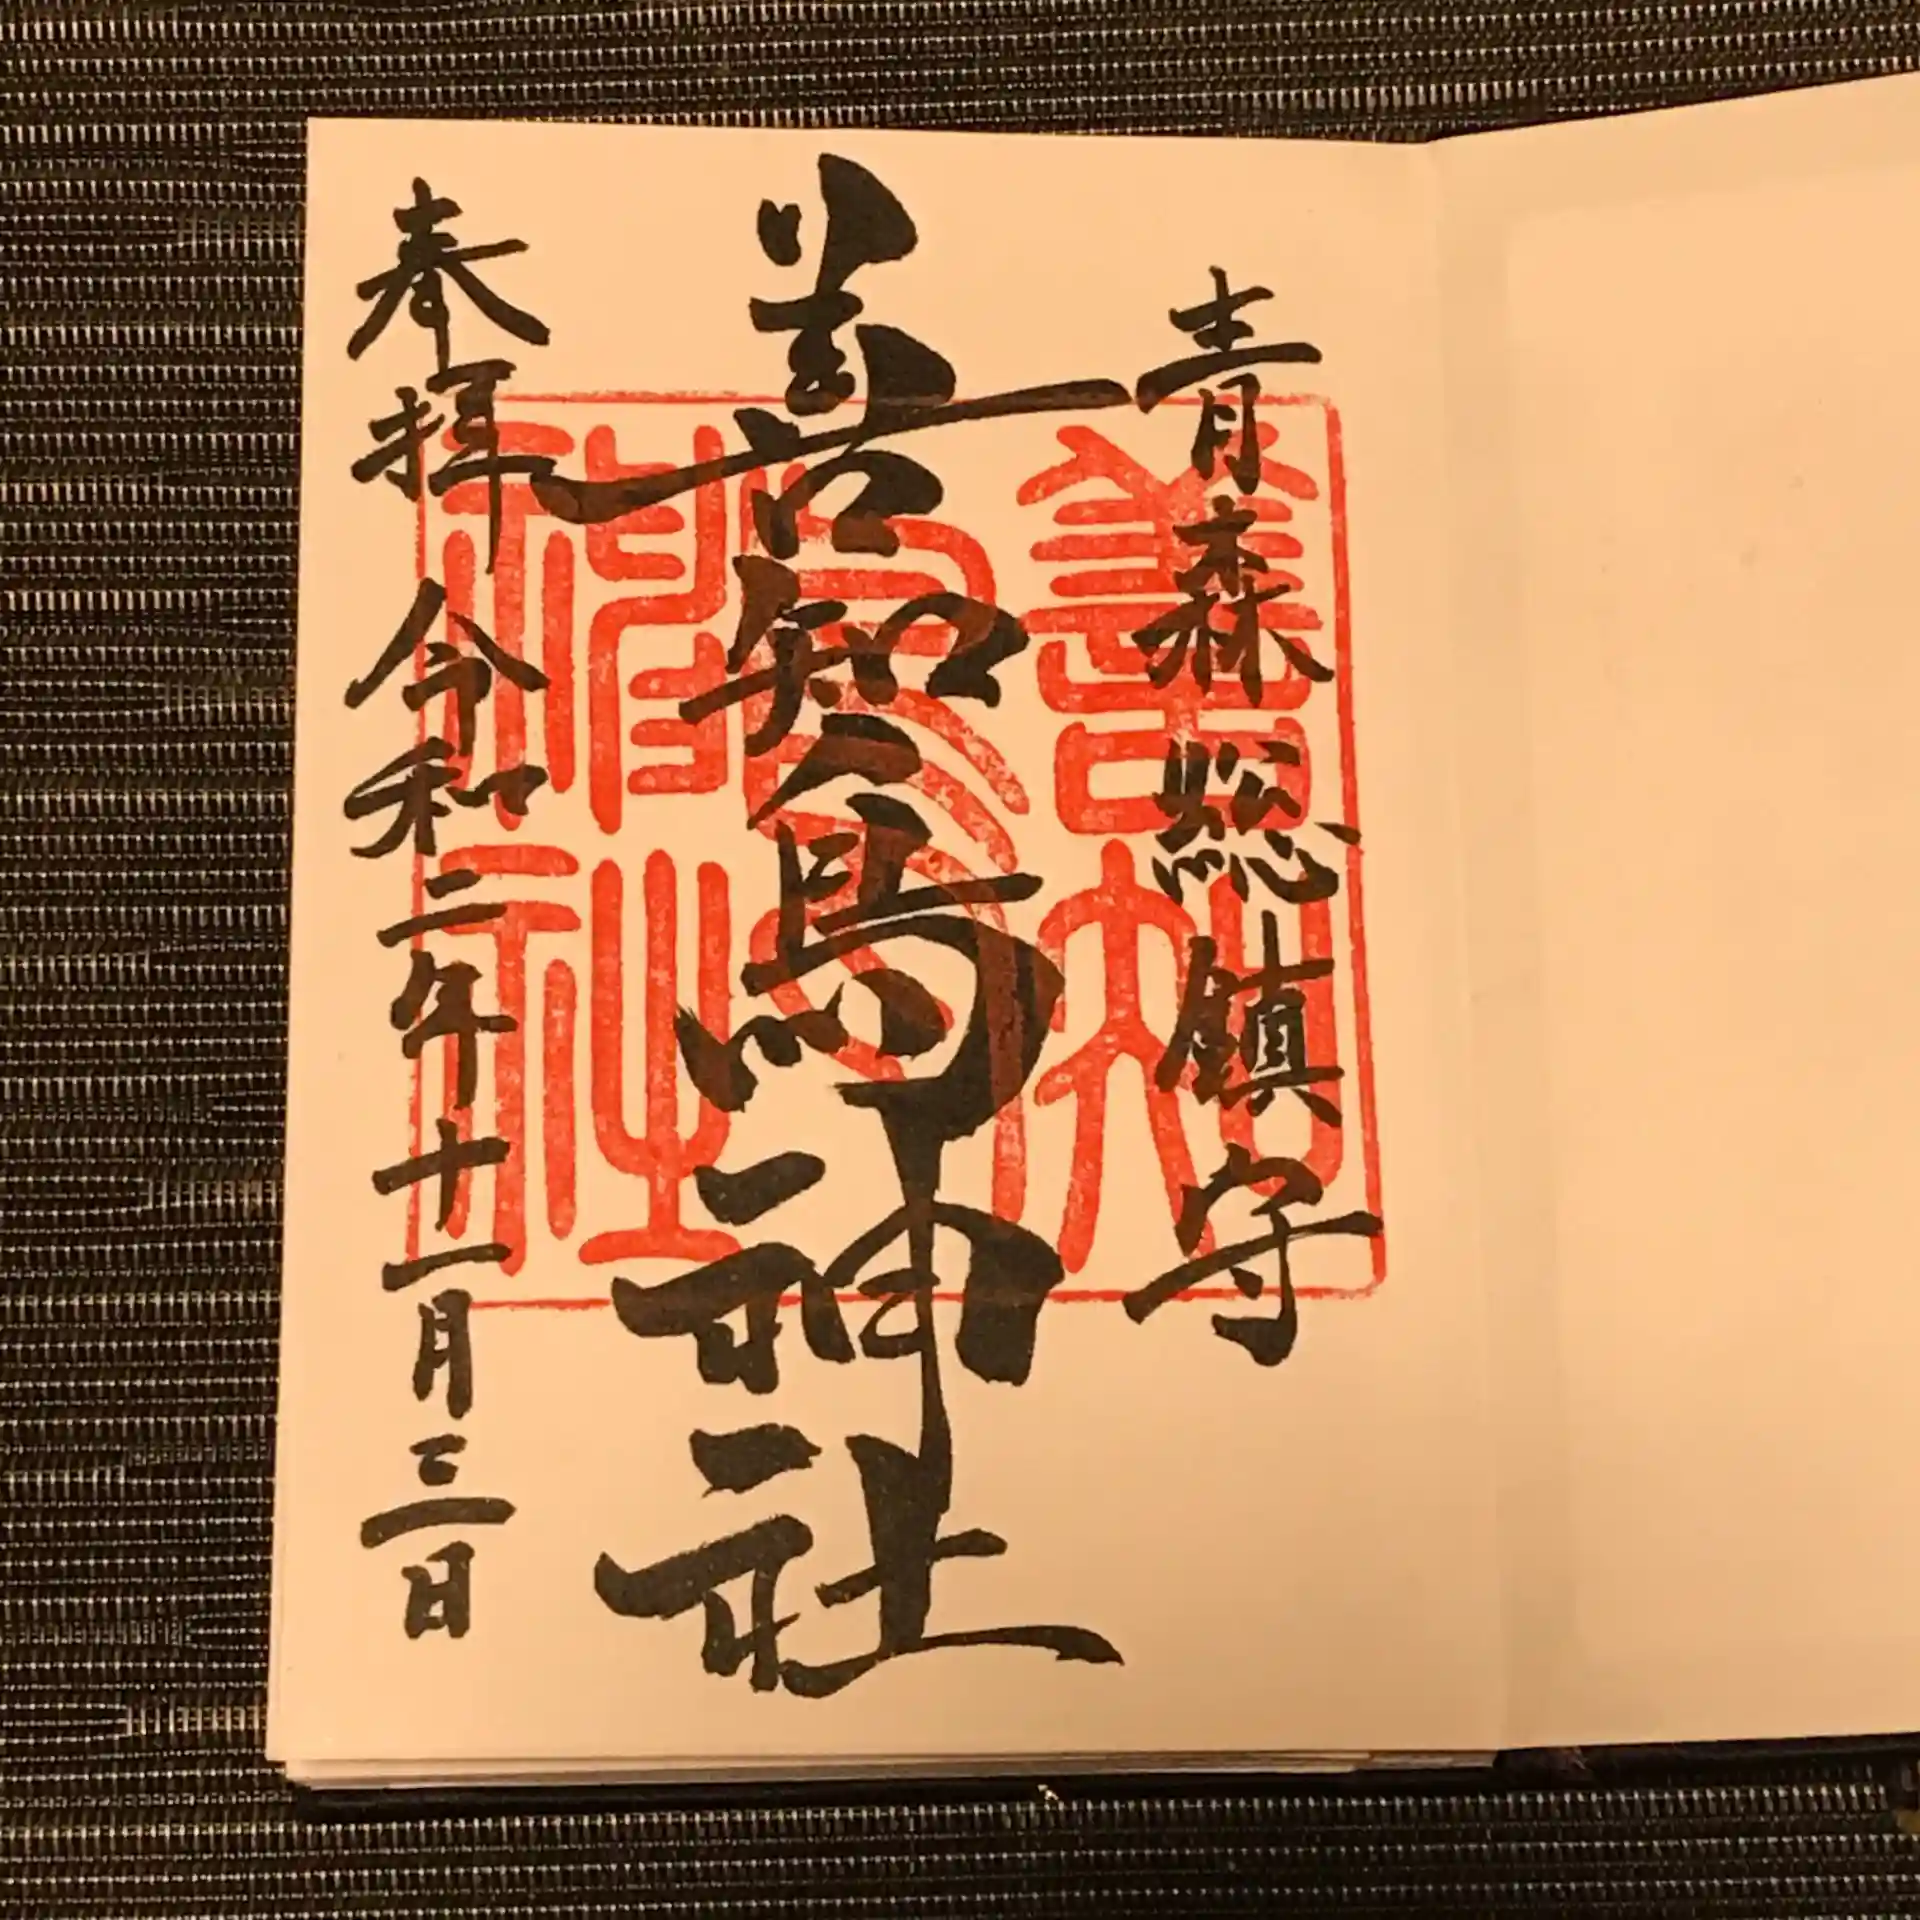 青森総鎮守
善知鳥神社
奉拝 令和二年十一月三日
善知
鳥
神社